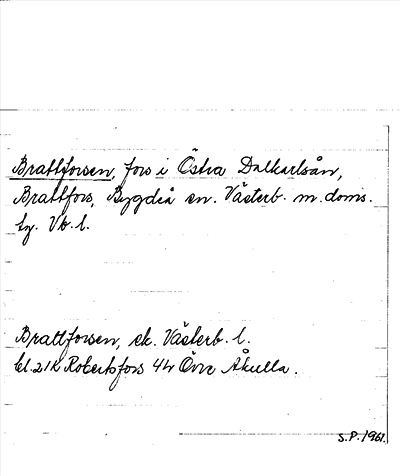 Brattforsen, fors i Östra Dalkarlsån,
Brattfors, Bygdeå sn. Västerb. m. doms.
Vb. l.
Brattforsen, ek. Västerb. l.
bl. 21K Robertsfors 4h Övre Åkulla.
S.P. 1961.